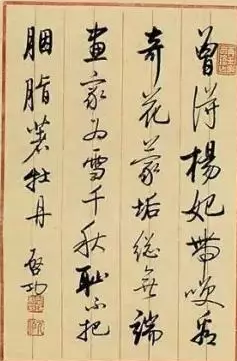 曾得楊妃帶笑看
奇花蒙垢總無端
畫家為雪千秋恥不把
胭脂著牡丹 啓功